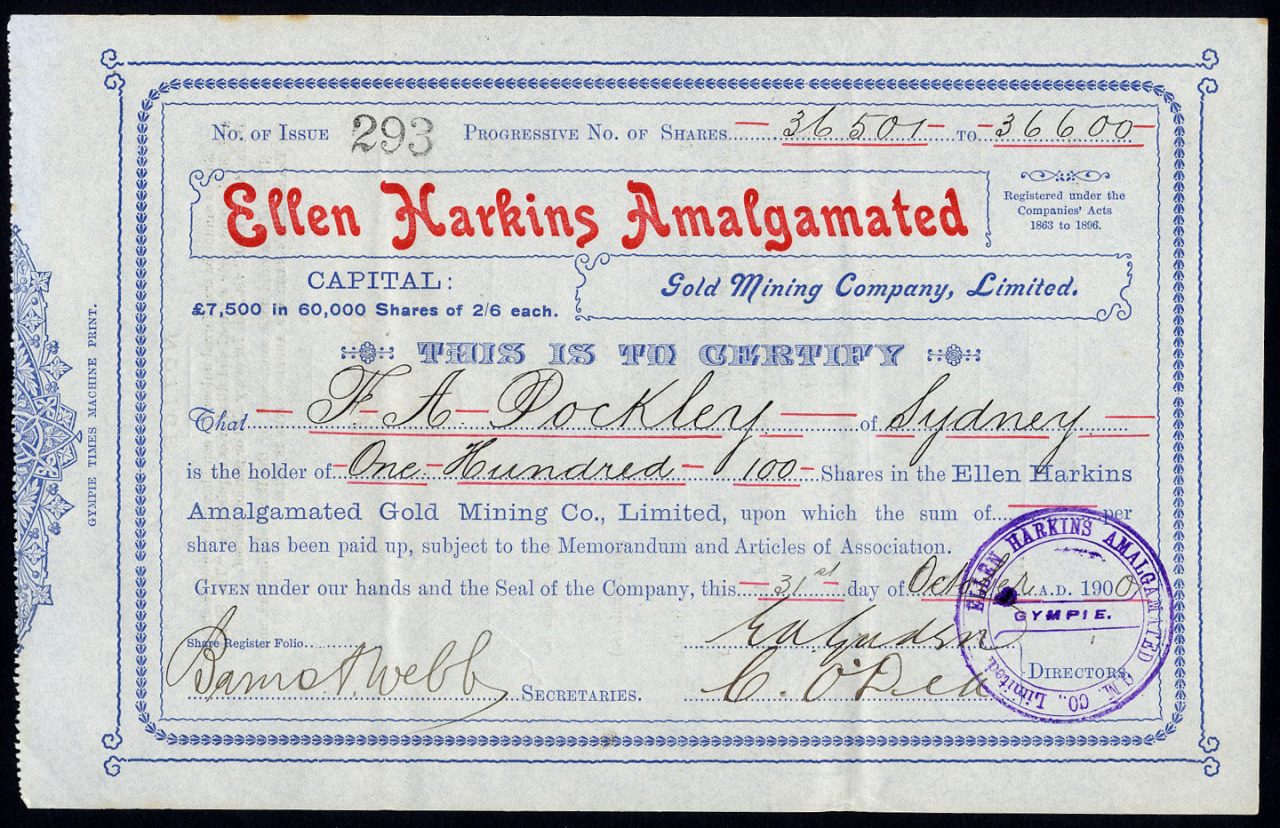 No. of Issue 293 Progressive No. of Shares 36501 to 36600
Ellen Harkins Amalgamated
Registered under the
Companies' Acts
1863 to 1896.
CAPITAL:
£7,500 in 60,000 Shares of 2/6 each.
Gold Mining Company, Limited.
THIS IS TO CERTIFY
That F A Pockley of Sydney
is the holder of One Hundred 100 Shares in the Ellen Harkins
Amalgamated Gold Mining Co., Limited, upon which the sum of per
share has been paid up, subject to the Memorandum and Articles of Association.
Given under our hands and the Seal of the Company, this 31st day of October A.D. 1900
Share Register Folio
Webb
Secretaries.
C. O'Dea
Directors
ELLEN HARKINS AMALGAMATED G.M. CO. Limited.
GYMPIE.
GYMPIE TIMES MACHINE PRINT.